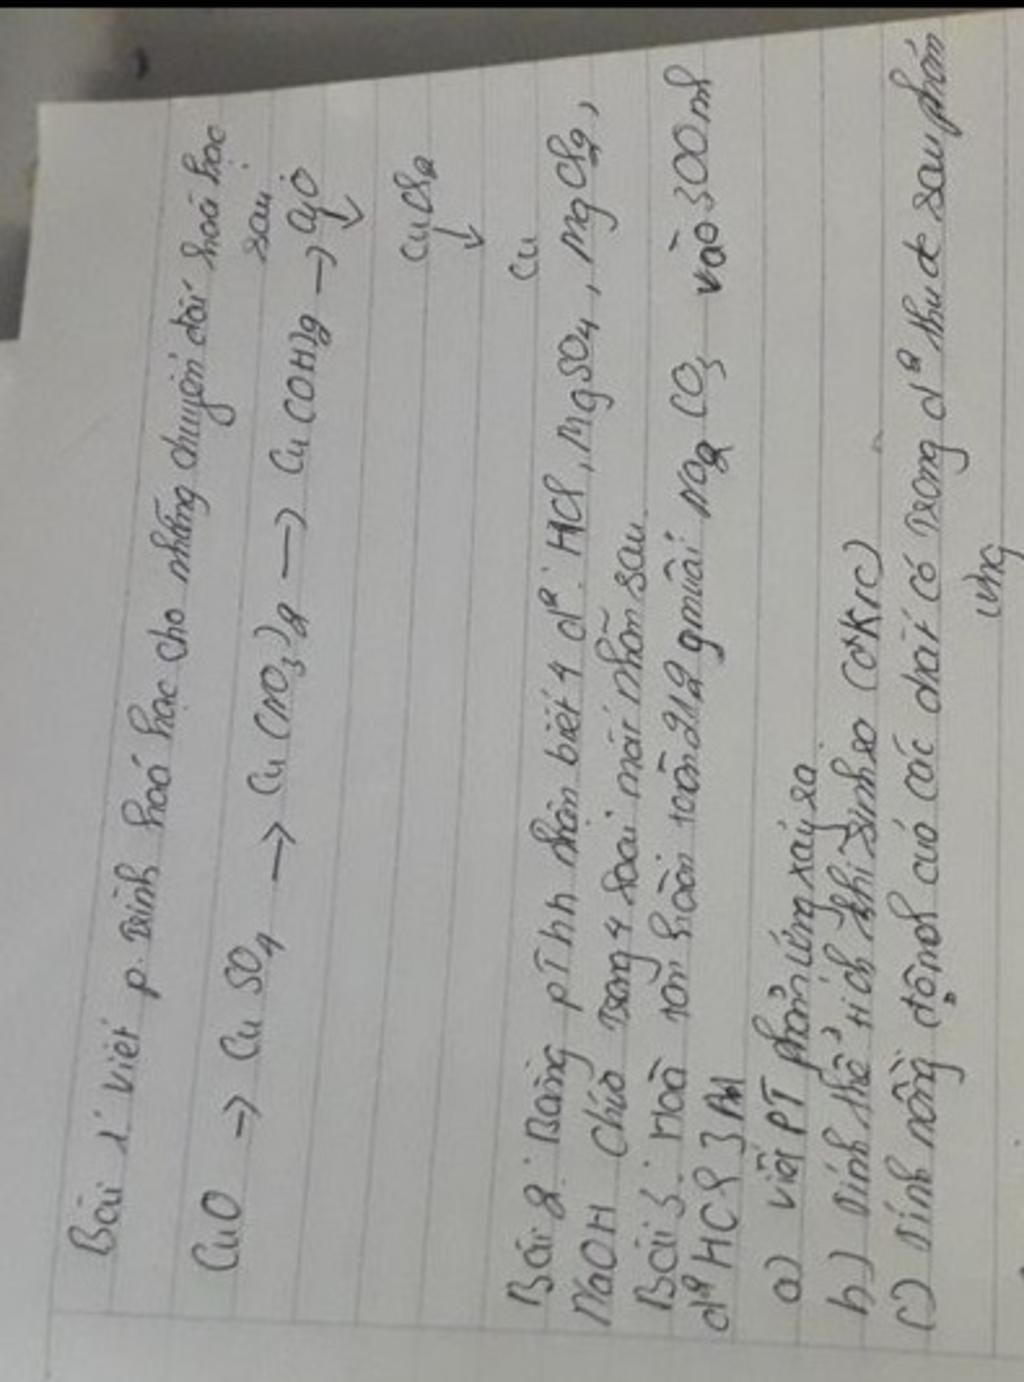 Bài 1: viết p. trình hoá học cho những chuyển đổi hoá học sau
CuO → CuSO4 → Cu(NO3)2 → Cu(OH)2 → CuO
↓
CuCl2
↓
Cu
Bài 2: Bằng pThh nhận biết 4 d2: HCl, MgSO4, MgCl2,
NaOH chứa trong 4 loại mất nhãn sau.
Bài 3: Hoà tan hoàn toàn 21,2 g muối Na2CO3 vào 300 ml
d2 HCl 3M
a) viết PT phản ứng xảy ra
b) tính thể tích khí sinh ra (ở Ktc)
c) tính nồng độ mol của các chất có trong d2 thu đc sau phản
ứng